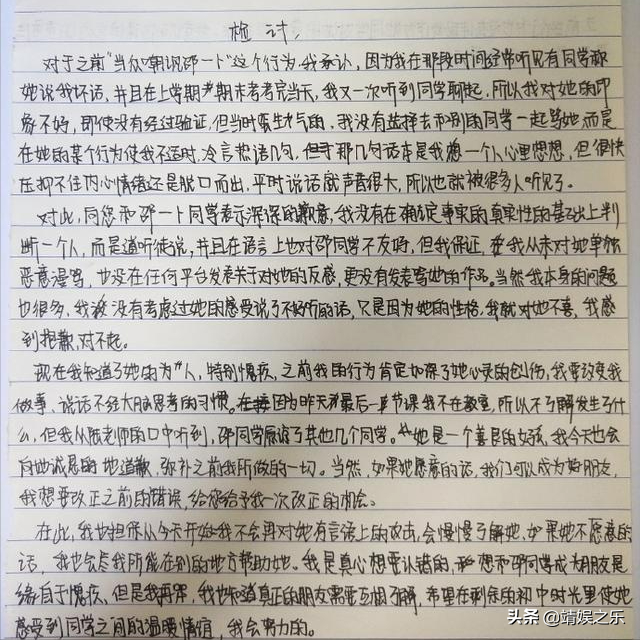 检讨,
对于之前"当众嘲讽邵一卜"这个行为,我承认,因为我在那段时间经常听见有同学称
她说我坏话,并且在上学期期末考考完当天,我又一次听到同学聊起,所以我对她的印
象不好,即使没有经过验证,但当时蛮生气的,我没有选择去和别的同学一起骂她而是
在她的某个行为使我不适时,冷言热语几句,但于那几句话本是我想一个人心里想想,但很快
压抑不住内心情绪还是脱口而出,平时说话就声音很大,所以也就被很多人听见了。
对此,向您和邵一卜同学表示深深的歉意,我没有在确定事实的真实性的基础上判
断一个人,而是道听徒说,并且在语言上也对邵同学不友好,但我保证,我从未对她单独
恶意漫骂,也没在任何平台发表关于对她的反感,更没有发表骂她的作品,当然我本身的问题
也很多,我没有考虑过她的感受说了不好听的话,只是因为她的性格,我就对她不喜,我感
到抱歉,对不起。
现在我知道了她的为人,特别愧疚,之前我的行为肯定加深了她心灵的创伤,我要改变我
做事、说话不经大脑思考的习惯。因为昨天最后一节课我不在教室,所以不了解发生了什
么,但我从陈老师的口中听到,邵同学原谅了其他几个同学。她是一个善良的女孩,我今天也会
向她诚恳的地道歉,弥补之前我所做的一切。当然,如果她愿意的话,我们可以成为好朋友,
我想要改正之前的错误,给您给予我一次改正的机会。
在此,我也担保从今天开始我不会再对她有言语上的攻击,会慢慢了解她,如果她不愿意的
话,我也会尽我所能在别的地方帮助她。我是真心想要认错的,想和邵同学成为朋友是
缘自于愧疚,但是我再罪,我也知道真正的朋友需要互相了解,希望在剩余的初中时光里使她
感受到同学之间的温暖情谊,我会努力的。
头条 @婧娱之乐